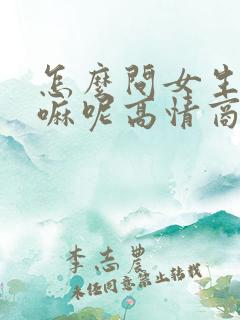 怎麽問女生
嘛呢高情商
李志農
未经同意禁止转载